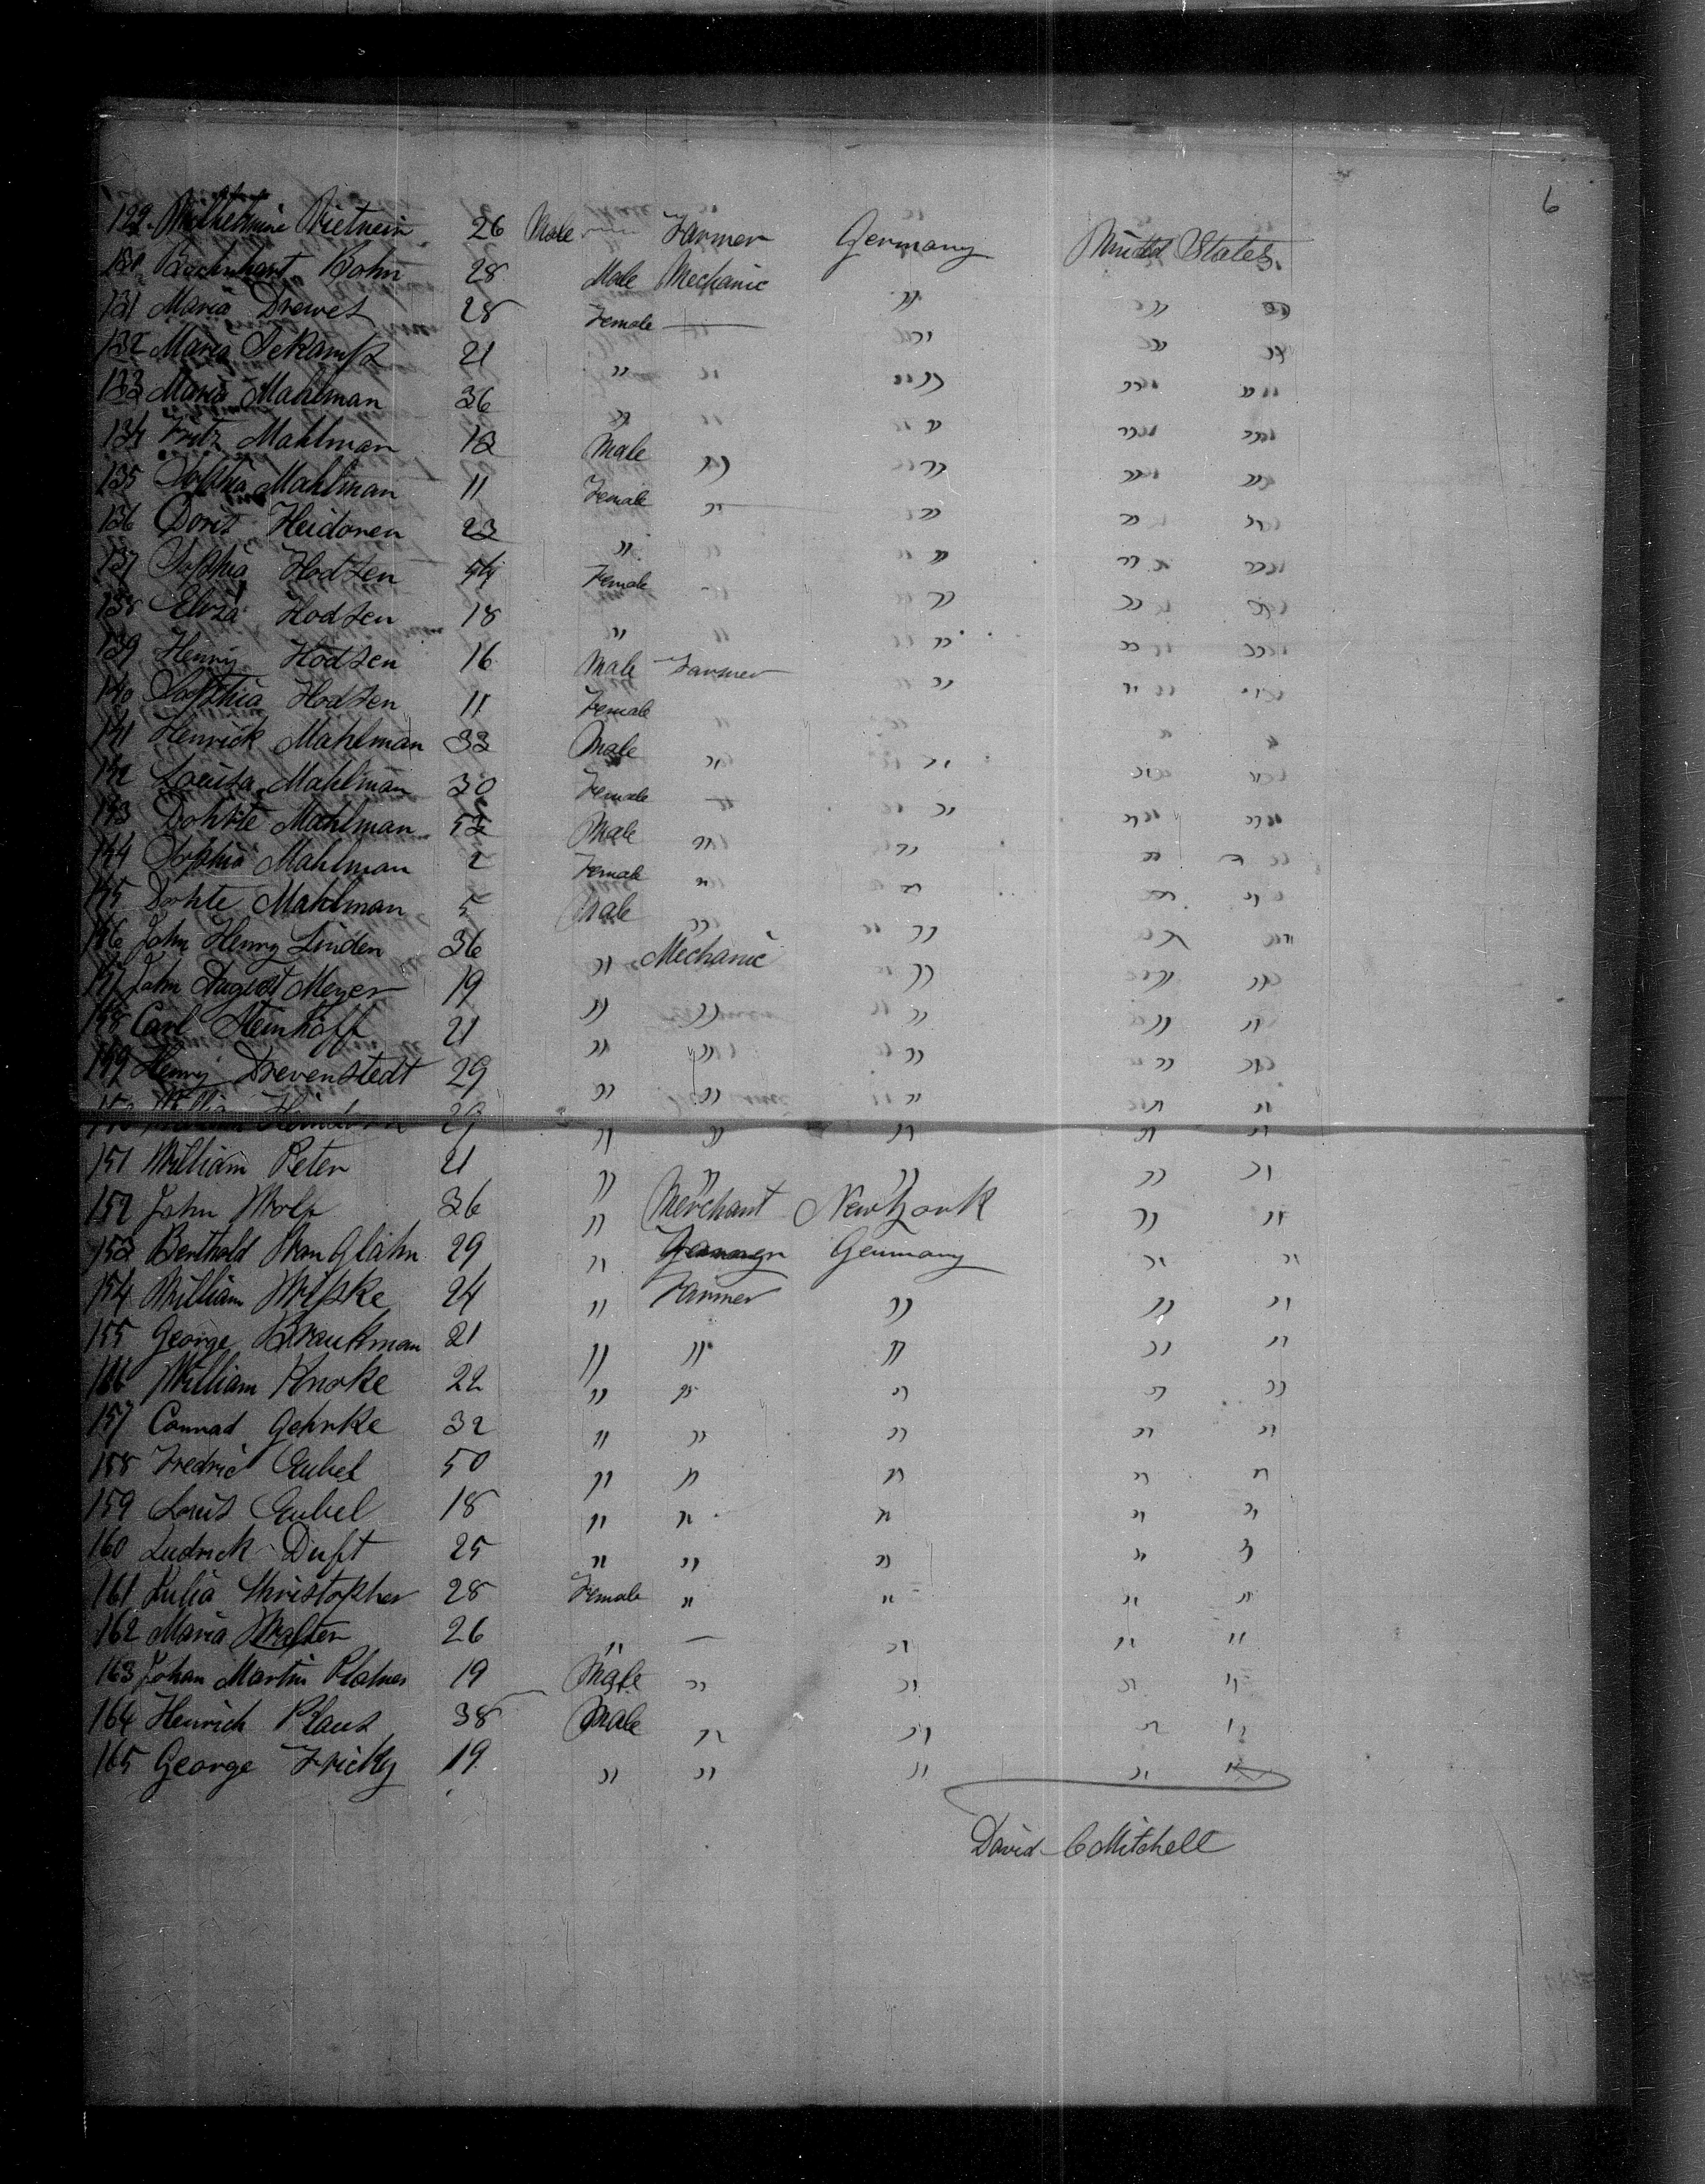 6
129 Wilhelmine Vietnein 26 Male Farmer Germany United States
130 Bernhart Bohn 28 Male Mechanic " " "
131 Maria Drewes 28 Female — " " "
132 Maria Sekamp 21 " " " " "
133 Maria Mahlman 36 " " " " "
134 Fritz Mahlman 13 Male " " " "
135 Sophia Mahlman 11 Female " " " "
136 Doris Heidonen 23 " " " " "
137 Sophia Hodsen 54 Female " " " "
138 Eliza Hodsen 18 " " " " "
139 Henry Hodsen 16 Male Farmer " " "
140 Sophia Hodsen 11 Female " " " "
141 Henrick Mahlman 33 Male " " " "
142 Louisa Mahlman 30 Female " " " "
143 Dohrte Mahlman Male " " " "
144 Sophia Mahlman 2 Female " " " "
145 Dohrte Mahlman 5 Male " " " "
146 John Henry Linden 36 " Mechanic " " "
147 John August Meyer 19 " " " " "
148 Carl Steinhoff 21 " " " " "
149 Henry Drevenstedt 29 " " " " "
150 William 29 " " " " "
151 William Peter 21 " " " " "
152 John Wolf 36 " Merchant New York " "
153 Berthold Von Glahn 29 " Germany " "
154 William Wipke 24 " Farmer " " "
155 George Braukman 21 " " " " "
156 William Knoke 22 " " " " "
157 Conrad Gehrke 32 " " " " "
158 Fredric Eubel 50 " " " " "
159 Louis Eubel 18 " " " " "
160 Ludrick Duft 25 " " " " "
161 Julia Christopher 28 Female " " " "
162 Maria Walter 26 " — " " "
163 Johan Martin Platner 19 Male " " " "
164 Henrich Klaus 38 Male " " " "
165 George Fricky 19 " " " " "
David C Mitchell